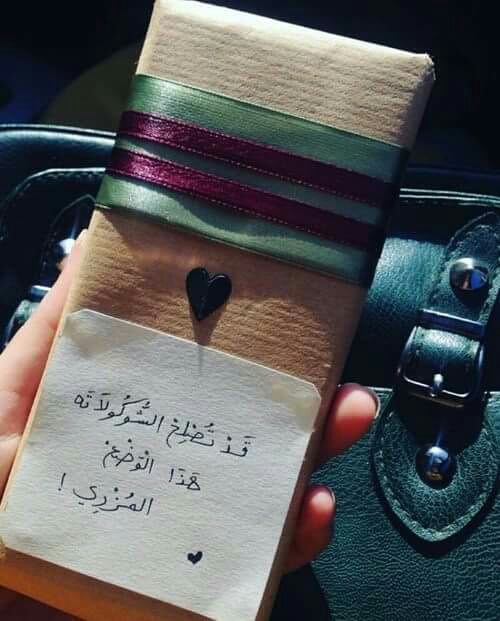 قَدْ تُصْلِحْ الشُّوكُولَاتَه
هَذَا الْوَضْعْ
المُزْرِي !